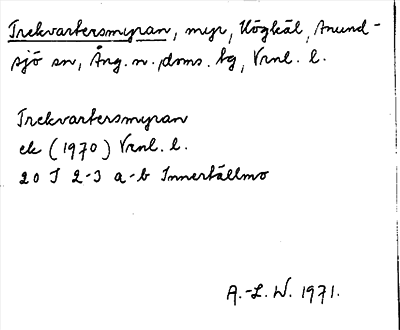 Trekvartersmyran, myr, Högkäl, Anund-
sjö sn, Ång. n. doms. bg, Vrnl. l.
Trekvartersmyran
ek (1970) Vrnl. l.
20 J 2-3 a-b Innertällmo
A.-L. W. 1971.